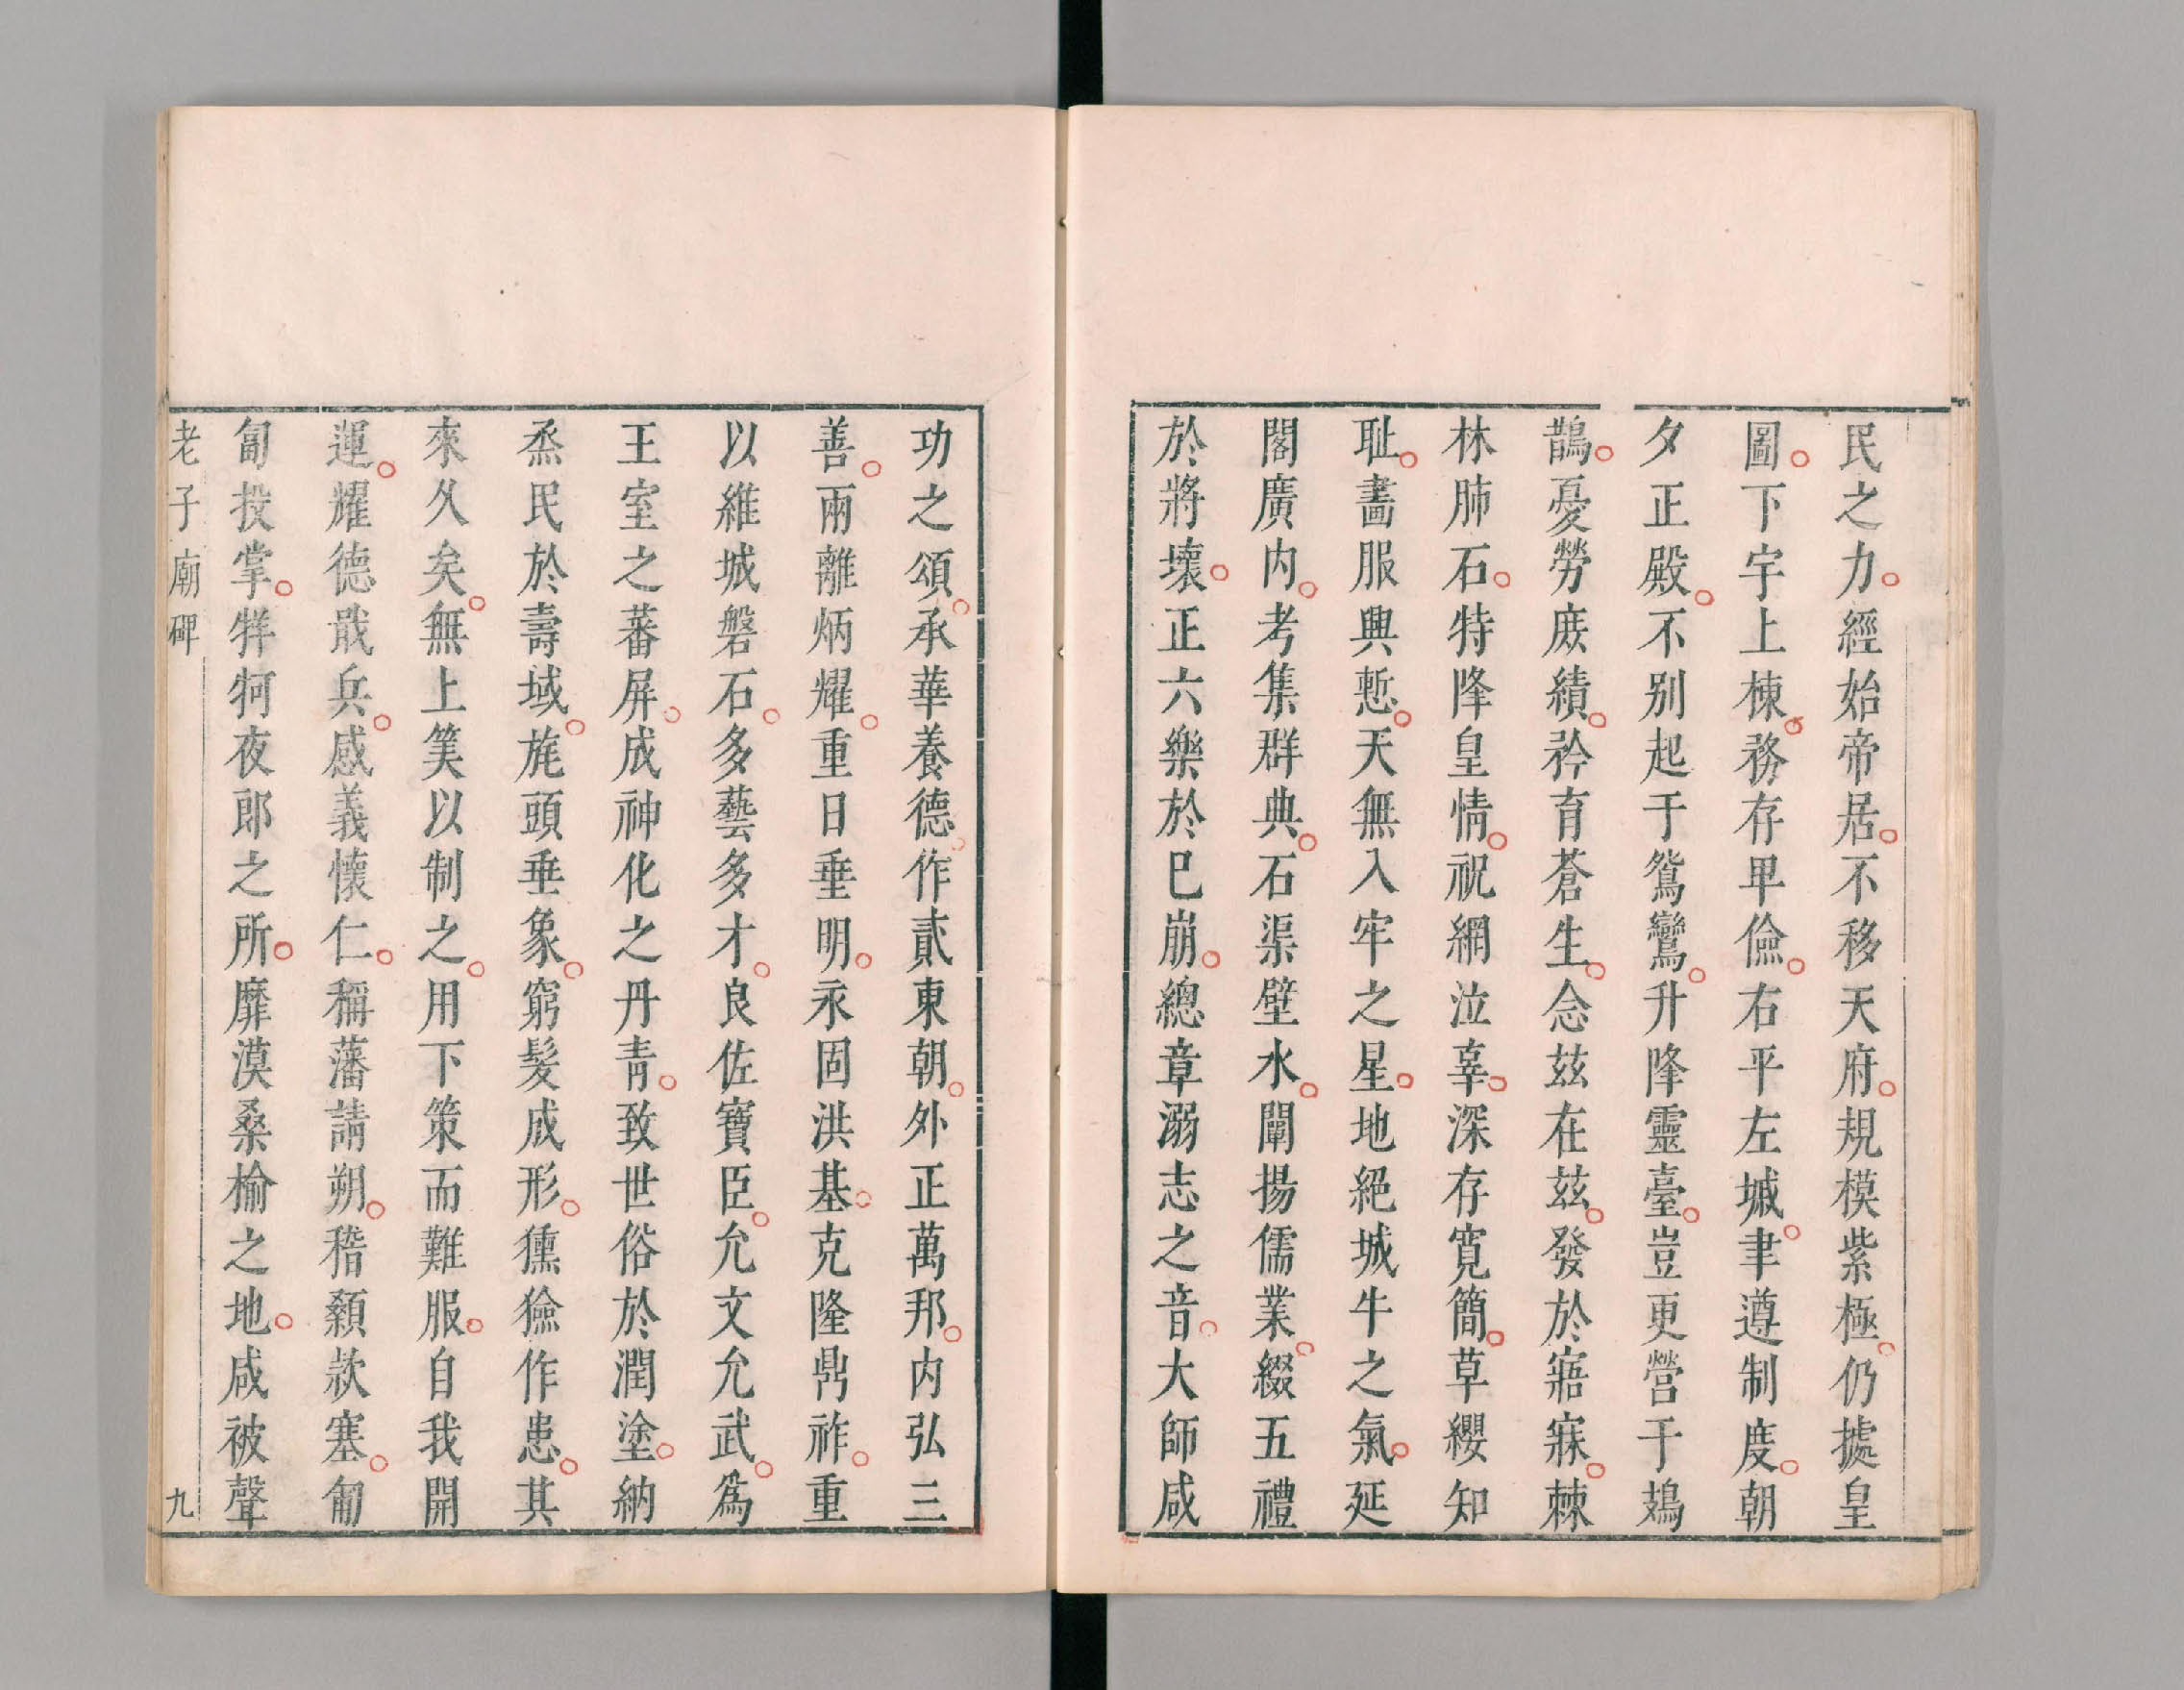 民之力。經始帝居。不移天府。規模紫極。仍據皇
圖。下宇上棟。務存卑儉。右平左墄。聿遵制度。朝
夕正殿。不别起于鴛鸞。升降靈臺。豈更營于鳷
鵲。憂勞庶績。矜育蒼生。念兹在兹。發於寤寐。棘
林肺石。特降皇情。祝網泣辜。深存寛簡。草纓知
耻。畵服興慙。天無入牢之星。地絕城牛之氣。延
閣廣内。考集群典。石渠壁水。闡揚儒業。綴五禮
於將壞。正六樂於已崩。總章溺志之音。大師咸
功之頌。承華養德。作貳東朝。外正萬邦。内弘三
善。兩離炳耀。重日垂明。永固洪基。克隆鼎祚。重
以維城磐石。多藝多才。良佐寶臣。允文允武。爲
王室之蕃屏。成神化之丹青。致世俗於潤塗。納
烝民於壽域。旄頭垂象。窮髮成形。獯獫作患。其
來久矣。無上筭以制之。用下策而難服。自我開
運。耀德戢兵。感義懷仁。稱藩請朔。稽顙款塞。匍
匐投掌。牂牁夜郎之所。靡漠桑榆之地。咸被聲
老子廟碑 九